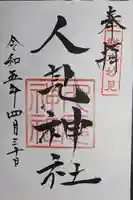 奉拝
人見神社
令和五年四月三十日